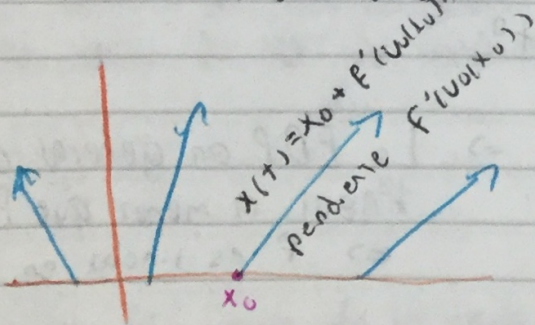 x(t)=x₀+F'(u₀(x₀)
pendiente F'(u₀(x₀))
x₀